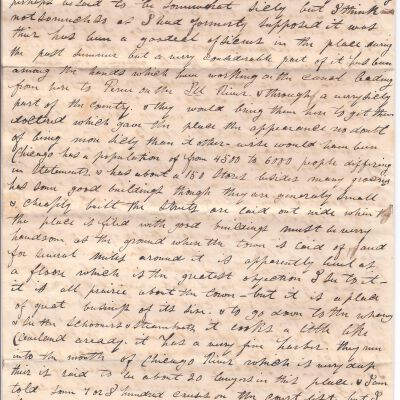 perhaps is said to be somewhat sickly but I think
not so much so as I had formerly supposed it was
their has been a good eal of sickness in the place during
the past summer but a very considerable part of it has been
among the hands which have working on the canal leading
from here to Peru on the Ill River. & through a very sickly
part of the country. & they would bring them here to get them
doctered which gave the place the appearance no doubt
of being more sickly than it otherwise would have been
Chicago has a population of from 4500 to 6000 people differing
in Statements. & has about a 150 Stores besides many grocerys
has some good buildings though they are generaly small
& cheaply built the streets are laid out wide when
the place is filed with good buildings must be very
handsom as the ground where the town is laid of and
for several miles around it is apparently level as
a floor which is the greatest objection I see to it-
it is all prairie about the town - but it is a place
of great business of its size. & to go down to the wharves
& see the Schooners & Steamboats it looks a little like
Cleveland already. it has a very fine harbor. they run
into the mouth of Chicago River which is very deep
their is said to be about 20 lawyers in this place. & I am
told some 7 or 8 hundred cases on the court list but I